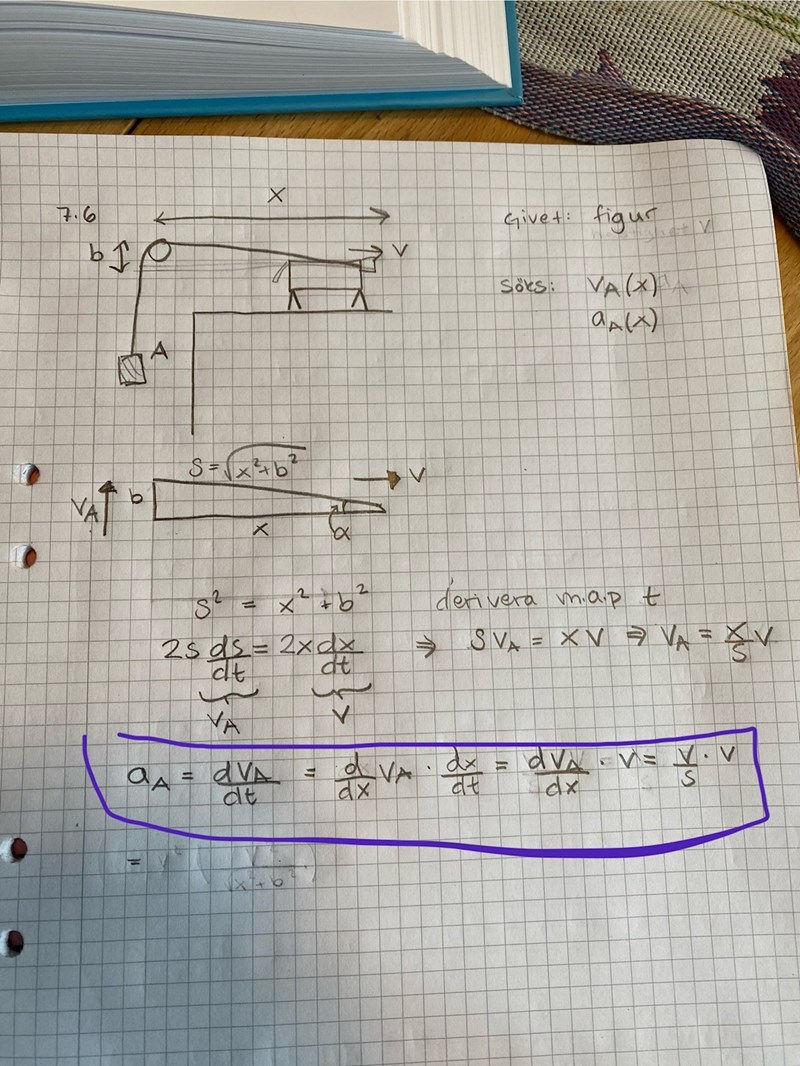 7.6
x
b
v
A
Givet: figur
söks: VA(x)
aA(x)
S=√x²+b²
v
VA
b
x
α
s² = x² + b² derivera m.a.p t
2s ds/dt = 2x dx/dt ⇒ SVA = XV ⇒ VA = x/s V
VA V
aA = dVA/dt = d/dx VA · dx/dt = dVA/dx · V = V/s · V
=